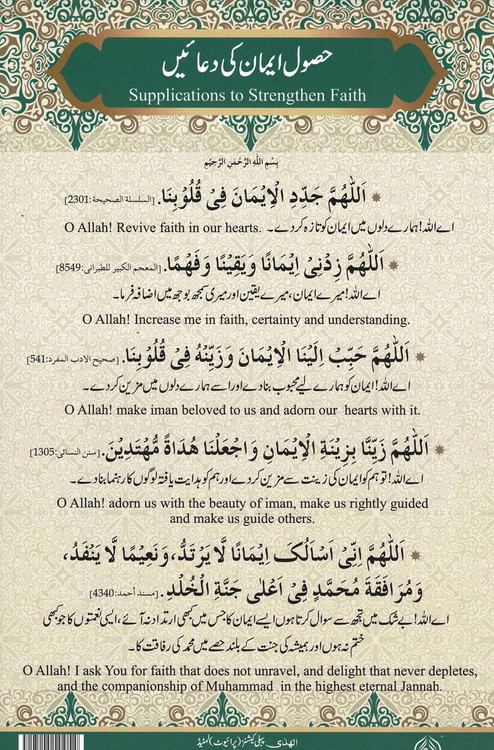 حصول ایمان کی دعائیں
Supplications to Strengthen Faith
بِسْمِ اللّٰهِ الرَّحْمٰنِ الرَّحِيْمِ
اَللّٰهُمَّ جَدِّدِ الْاِيْمَانَ فِيْ قُلُوْبِنَا. [السلسلة الصحيحة:2301]
اے اللہ! ہمارے دلوں میں ایمان کو تازہ کر دے۔ O Allah! Revive faith in our hearts.
اَللّٰهُمَّ زِدْنِيْ اِيْمَانًا وَيَقِيْنًا وَفَهْمًا. [المعجم الكبير للطبراني:8549]
اے اللہ! میرے ایمان، میرے یقین اور میری سمجھ بوجھ میں اضافہ فرما۔
O Allah! Increase me in faith, certainty and understanding.
اَللّٰهُمَّ حَبِّبْ اِلَيْنَا الْاِيْمَانَ وَزَيِّنْهُ فِيْ قُلُوْبِنَا. [صحيح الادب المفرد:541]
اے اللہ! ایمان کو ہمارے لیے محبوب بنا دے اور اسے ہمارے دلوں میں مزین کر دے۔
O Allah! make iman beloved to us and adorn our hearts with it.
اَللّٰهُمَّ زَيِّنَّا بِزِيْنَةِ الْاِيْمَانِ وَاجْعَلْنَا هُدَاةً مُّهْتَدِيْنَ. [سنن النسائي:1305]
اے اللہ! تو ہم کو ایمان کی زینت سے مزین کر دے اور ہم کو ہدایت یافتہ لوگوں کا رہنما بنا دے۔
O Allah! adorn us with the beauty of iman, make us rightly guided
and make us guide others.
اَللّٰهُمَّ اِنِّيْ اَسْاَلُكَ اِيْمَانًا لَّا يَرْتَدُّ، وَنَعِيْمًا لَّا يَنْفَدُ،
وَمُرَافَقَةَ مُحَمَّدٍ فِيْ اَعْلٰى جَنَّةِ الْخُلْدِ. [مسند احمد:4340]
اے اللہ! بے شک میں تجھ سے سوال کرتا ہوں ایسے ایمان کا جس میں کبھی ارتداد نہ آئے، ایسی نعمتوں کا جو کبھی
ختم نہ ہوں اور ہمیشہ کی جنت کے بلند حصے میں محمد کی رفاقت کا۔
O Allah! I ask You for faith that does not unravel, and delight that never depletes,
and the companionship of Muhammad in the highest eternal Jannah.
الهدى پبلی کیشنز (پرائیوٹ) لمیٹڈ